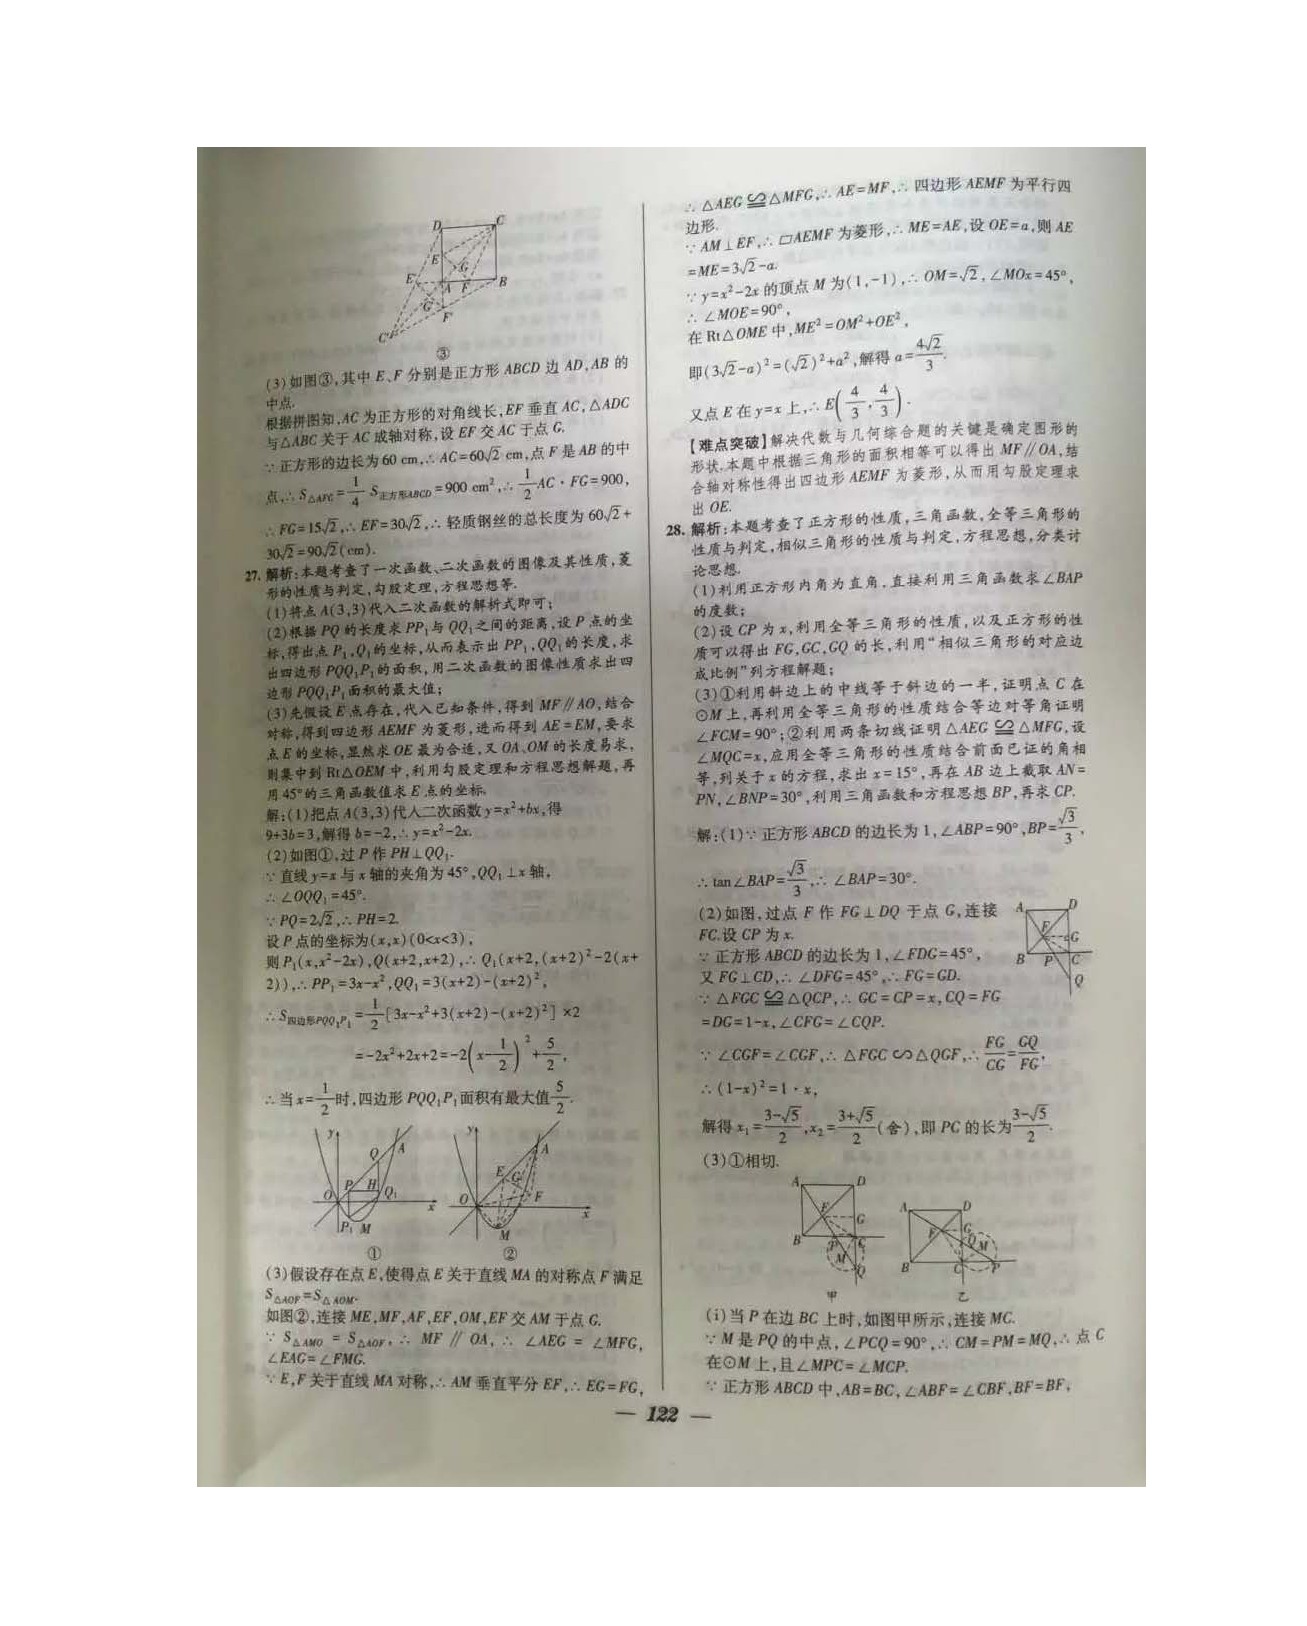 D
C
E
G
E'
A
F
B
G'
F'
C'
③
(3)如图③,其中 E、F 分别是正方形 ABCD 边 AD,AB 的
中点.
根据拼图知,AC 为正方形的对角线长,EF 垂直 AC,△ADC
与△ABC 关于 AC 成轴对称,设 EF 交 AC 于点 G.
∵正方形的边长为 60 cm,∴AC=60√2 cm,点 F 是 AB 的中
点,∴S△AFC=1/4 S正方形ABCD=900 cm²,∴1/2 AC·FG=900,
∴FG=15√2,∴EF=30√2,∴轻质钢丝的总长度为 60√2+
30√2=90√2(cm).
27. 解析:本题考查了一次函数、二次函数的图像及其性质,菱
形的性质与判定,勾股定理,方程思想等.
(1)将点 A(3,3)代入二次函数的解析式即可;
(2)根据 PQ 的长度求 PP₁与 QQ₁之间的距离,设 P 点的坐
标,得出点 P₁,Q₁的坐标,从而表示出 PP₁,QQ₁的长度,求
出四边形 PQQ₁P₁的面积,用二次函数的图像性质求出四
边形 PQQ₁P₁面积的最大值;
(3)先假设 E 点存在,代入已知条件,得到 MF∥AO,结合
对称,得到四边形 AEMF 为菱形,进而得到 AE=EM,要求
点 E 的坐标,显然求 OE 最为合适,又 OA、OM 的长度易求,
则集中到 Rt△OEM 中,利用勾股定理和方程思想解题,再
用 45°的三角函数值求 E 点的坐标.
解:(1)把点 A(3,3)代入二次函数 y=x²+bx,得
9+3b=3,解得 b=-2,∴y=x²-2x.
(2)如图①,过 P 作 PH⊥QQ₁.
∵直线 y=x 与 x 轴的夹角为 45°,QQ₁⊥x 轴,
∴∠OQQ₁=45°.
∵PQ=2√2,∴PH=2.
设 P 点的坐标为(x,x)(0<x<3),
则 P₁(x,x²-2x),Q(x+2,x+2),∴Q₁(x+2,(x+2)²-2(x+
2)),∴PP₁=3x-x²,QQ₁=3(x+2)-(x+2)²,
∴S四边形PQQ₁P₁=1/2[3x-x²+3(x+2)-(x+2)²]×2
=-2x²+2x+2=-2(x-1/2)²+5/2,
∴当 x=1/2时,四边形 PQQ₁P₁面积有最大值5/2.
y
Q
A
P
H
O
Q₁
x
P₁
M
①
y
A
E
G
F
O
x
M
②
(3)假设存在点 E,使得点 E 关于直线 MA 的对称点 F 满足
S△AOF=S△AOM.
如图②,连接 ME,MF,AF,EF,OM,EF 交 AM 于点 G.
∵S△AMO=S△AOF,∴MF∥OA,∴∠AEG=∠MFG,
∠EAG=∠FMG.
∵E,F 关于直线 MA 对称,∴AM 垂直平分 EF,∴EG=FG,
∴△AEG≌△MFG,∴AE=MF,∴四边形 AEMF 为平行四
边形.
∵AM⊥EF,∴▱AEMF 为菱形,∴ME=AE,设 OE=a,则 AE
=ME=3√2-a.
∵y=x²-2x 的顶点 M 为(1,-1),∴OM=√2,∠MOx=45°,
∴∠MOE=90°,
在 Rt△OME 中,ME²=OM²+OE²,
即(3√2-a)²=(√2)²+a²,解得 a=4√2/3.
又点 E 在 y=x 上,∴E(4/3,4/3).
【难点突破】解决代数与几何综合题的关键是确定图形的
形状.本题中根据三角形的面积相等可以得出 MF∥OA,结
合轴对称性得出四边形 AEMF 为菱形,从而用勾股定理求
出 OE.
28. 解析:本题考查了正方形的性质,三角函数,全等三角形的
性质与判定,相似三角形的性质与判定,方程思想,分类讨
论思想.
(1)利用正方形内角为直角,直接利用三角函数求∠BAP
的度数;
(2)设 CP 为 x,利用全等三角形的性质,以及正方形的性
质可以得出 FG,GC,GQ 的长,利用“相似三角形的对应边
成比例”列方程解题;
(3)①利用斜边上的中线等于斜边的一半,证明点 C 在
⊙M 上,再利用全等三角形的性质结合等边对等角证明
∠FCM=90°;②利用两条切线证明△AEG≌△MFG,设
∠MQC=x,应用全等三角形的性质结合前面已证的角相
等,列关于 x 的方程,求出 x=15°,再在 AB 边上截取 AN=
PN,∠BNP=30°,利用三角函数和方程思想 BP,再求 CP.
解:(1)∵正方形 ABCD 的边长为 1,∠ABP=90°,BP=√3/3,
∴tan∠BAP=√3/3,∴∠BAP=30°.
(2)如图,过点 F 作 FG⊥DQ 于点 G,连接
FC.设 CP 为 x.
∵正方形 ABCD 的边长为 1,∠FDG=45°,
又 FG⊥CD,∴∠DFG=45°,∴FG=GD.
∵△FGC≌△QCP,∴GC=CP=x,CQ=FG
=DG=1-x,∠CFG=∠CQP.
∵∠CGF=∠CGF,∴△FGC∽△QGF,∴FG/CG=GQ/FG,
∴(1-x)²=1·x,
解得 x₁=(3-√5)/2,x₂=(3+√5)/2(舍),即 PC 的长为(3-√5)/2.
A
D
F
G
B
P
C
Q
(3)①相切.
A
D
F
G
B
P
C
M
Q
甲
A
D
F
G
Q
M
B
C
P
乙
(i)当 P 在边 BC 上时,如图甲所示,连接 MC.
∵M 是 PQ 的中点,∠PCQ=90°,∴CM=PM=MQ,∴点 C
在⊙M 上,且∠MPC=∠MCP.
∵正方形 ABCD 中,AB=BC,∠ABF=∠CBF,BF=BF,
— 122 —